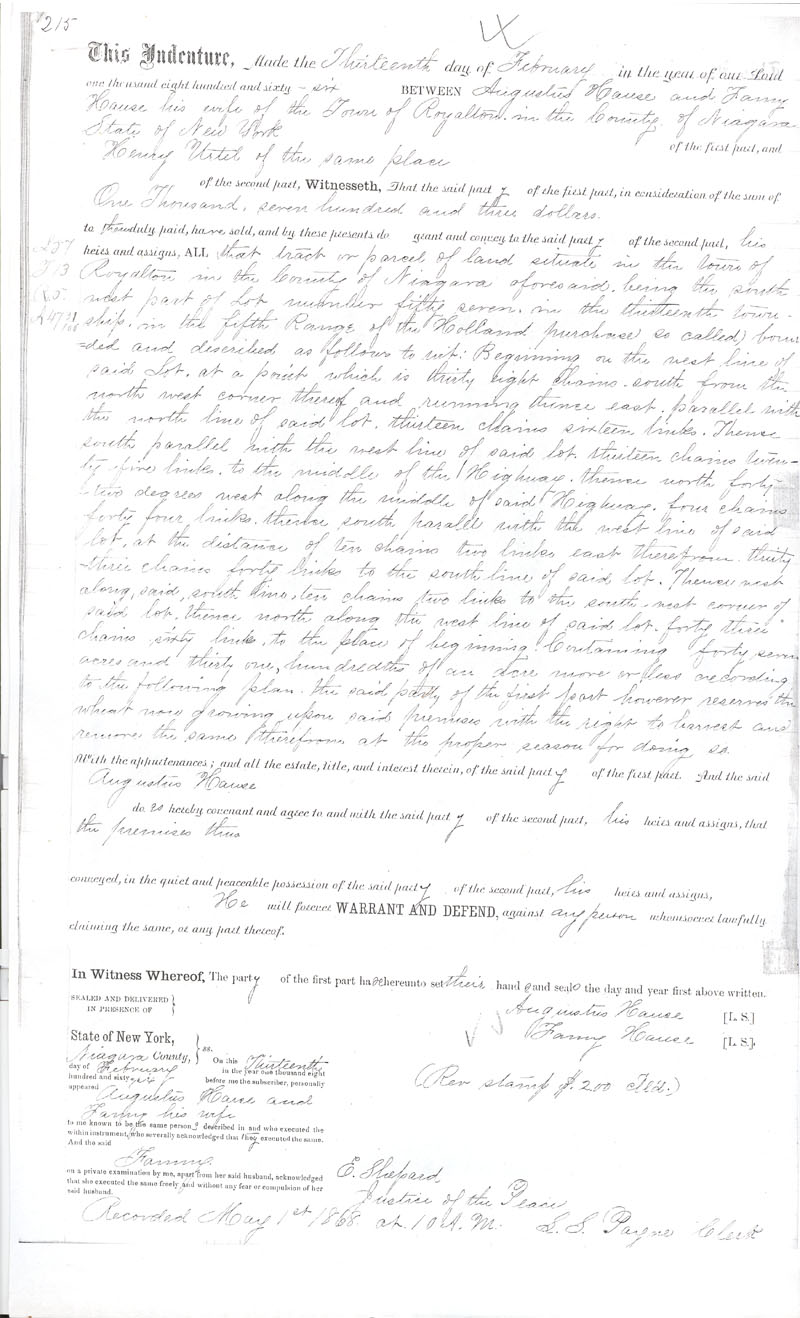 215
This Indenture, Made the Thirteenth day of February in the year of our Lord
one thousand eight hundred and sixty - six BETWEEN Augustus Hause and Fanny
Hause his wife of the Town of Royalton in the County of Niagara
State of New York of the first part, and
Henry Urtel of the same place
of the second part, Witnesseth, That the said party of the first part, in consideration of the sum of
One Thousand, seven hundred and three dollars.
to them duly paid, have sold, and by these presents do grant and convey to the said party of the second part, his
L 57
heirs and assigns, ALL that tract or parcel of land situate in the town of
T 13
Royalton in the County of Niagara aforesaid, being the south
R 5
west part of Lot number fifty seven, in the thirteenth town-
A 47 31/100
ship, in the fifth Range of the Holland purchase so called) boun
=ded and described as follows to wit: Beginning on the west line of
said Lot, at a point which is thirty eight chains south from the
north west corner thereof and running thence east, parallel with
the north line of said lot, thirteen chains sixteen links. Thence
south parallel with the west line of said lot thirteen chains twen-
ty five links, to the middle of the Highway. thence north forty
-two degrees west along the middle of said Highway, four chains
forty four links, thence south parallel with the west line of said
lot, at the distance of ten chains two links east therefrom, thirty
-three chains forty links to the south line of said lot. Thence west
along, said, south line, ten chains two links to the south-west corner of
said lot, thence north along the west line of said lot, forty three
chains sixty links, to the place of beginning. Containing forty seven
acres and thirty one, hundredths of an Acre more or less according
to the following plan. the said party of the first part however reserves the
wheat now growing upon said premises with the right to harvest and
remove the same therefrom at the proper season for doing so.
With the appurtenances; and all the estate, title, and interest therein, of the said party of the first part. And the said
Augustus Hause
do es hereby covenant and agree to and with the said party of the second part, his heirs and assigns, that
the premises thus
conveyed, in the quiet and peaceable possession of the said party of the second part, his heirs and assigns,
He will forever WARRANT AND DEFEND, against any person whomsoever lawfully
claiming the same, or any part thereof.
In Witness Whereof, The party of the first part ha hereunto set their hand and seal the day and year first above written.
SEALED AND DELIVERED
IN PRESENCE OF
Augustus Hause [L. S.]
Fanny Hause [L. S.]
State of New York,
Niagara County, ss. On this Thirteenth
day of February in the year one thousand eight
hundred and sixty six before me the subscriber, personally
appeared Augustus Hause and
Fanny his wife
to me known to be the same persons described in and who executed the
within instrument, who severally acknowledged that they executed the same.
And the said
Fanny
on a private examination by me, apart from her said husband, acknowledged
that she executed the same freely and without any fear or compulsion of her
said husband.
(Rev stamp $.200 )
E. Shepard,
Justice of the Peace
Recorded May 1st 1868 at 10 A.M. L. S. Payne Clerk